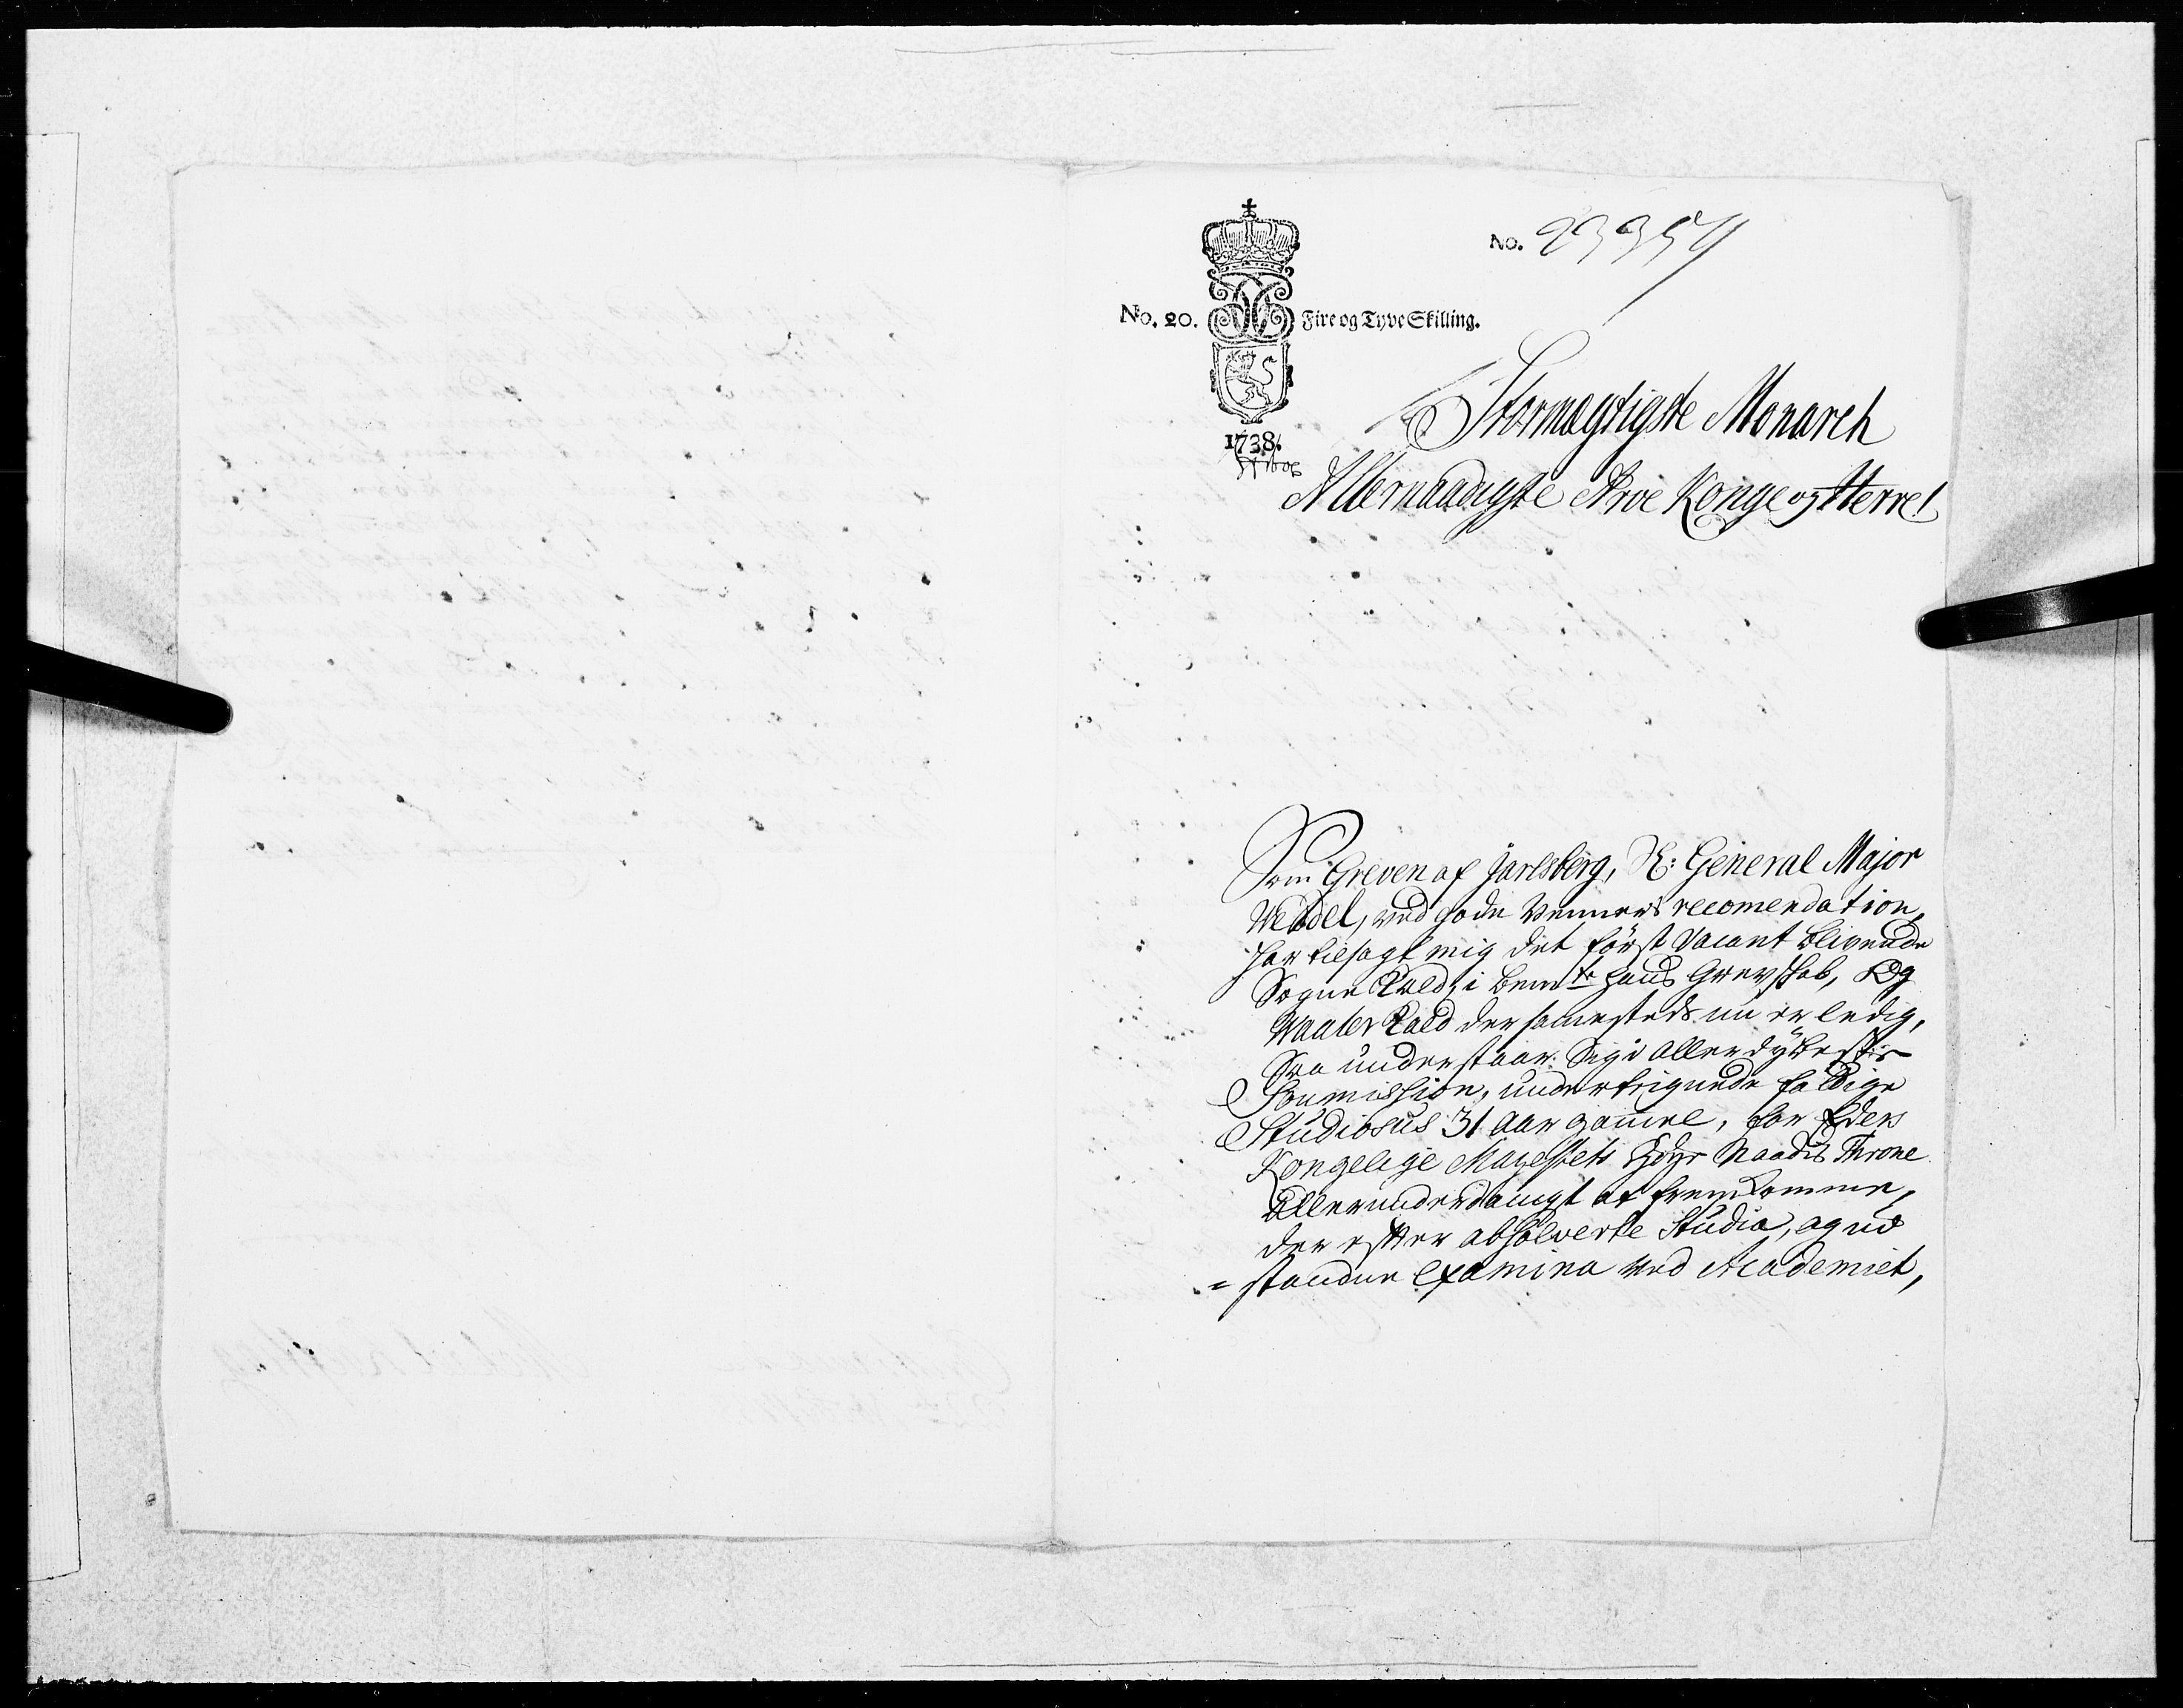 No. 23354
No. 20. Fire og Tyve Skilling.
1738.
Stormægtigste Monarch
Allernaadigste Arve Konge og Herre!
Som Greven af Jarlsberg, H: General Major
Wedel, ved gode Venners recomendation,
har tilsagt mig det först Vacant blivende
Sogne Kald, i bemte hans Grevskab, Og
Waaler Kald der sammesteds nu er ledig,
Saa understaar sig i allerdybeste
Soumission, undertegnede fattige
Studiosus 31 Aar gammel, for Eders
Kongelige Mayestets Höye Naadis Throne
Allerunderdanigst at fremkomme,
der efter absolverte Studia, og ud
= standne Examina ved Academiet,